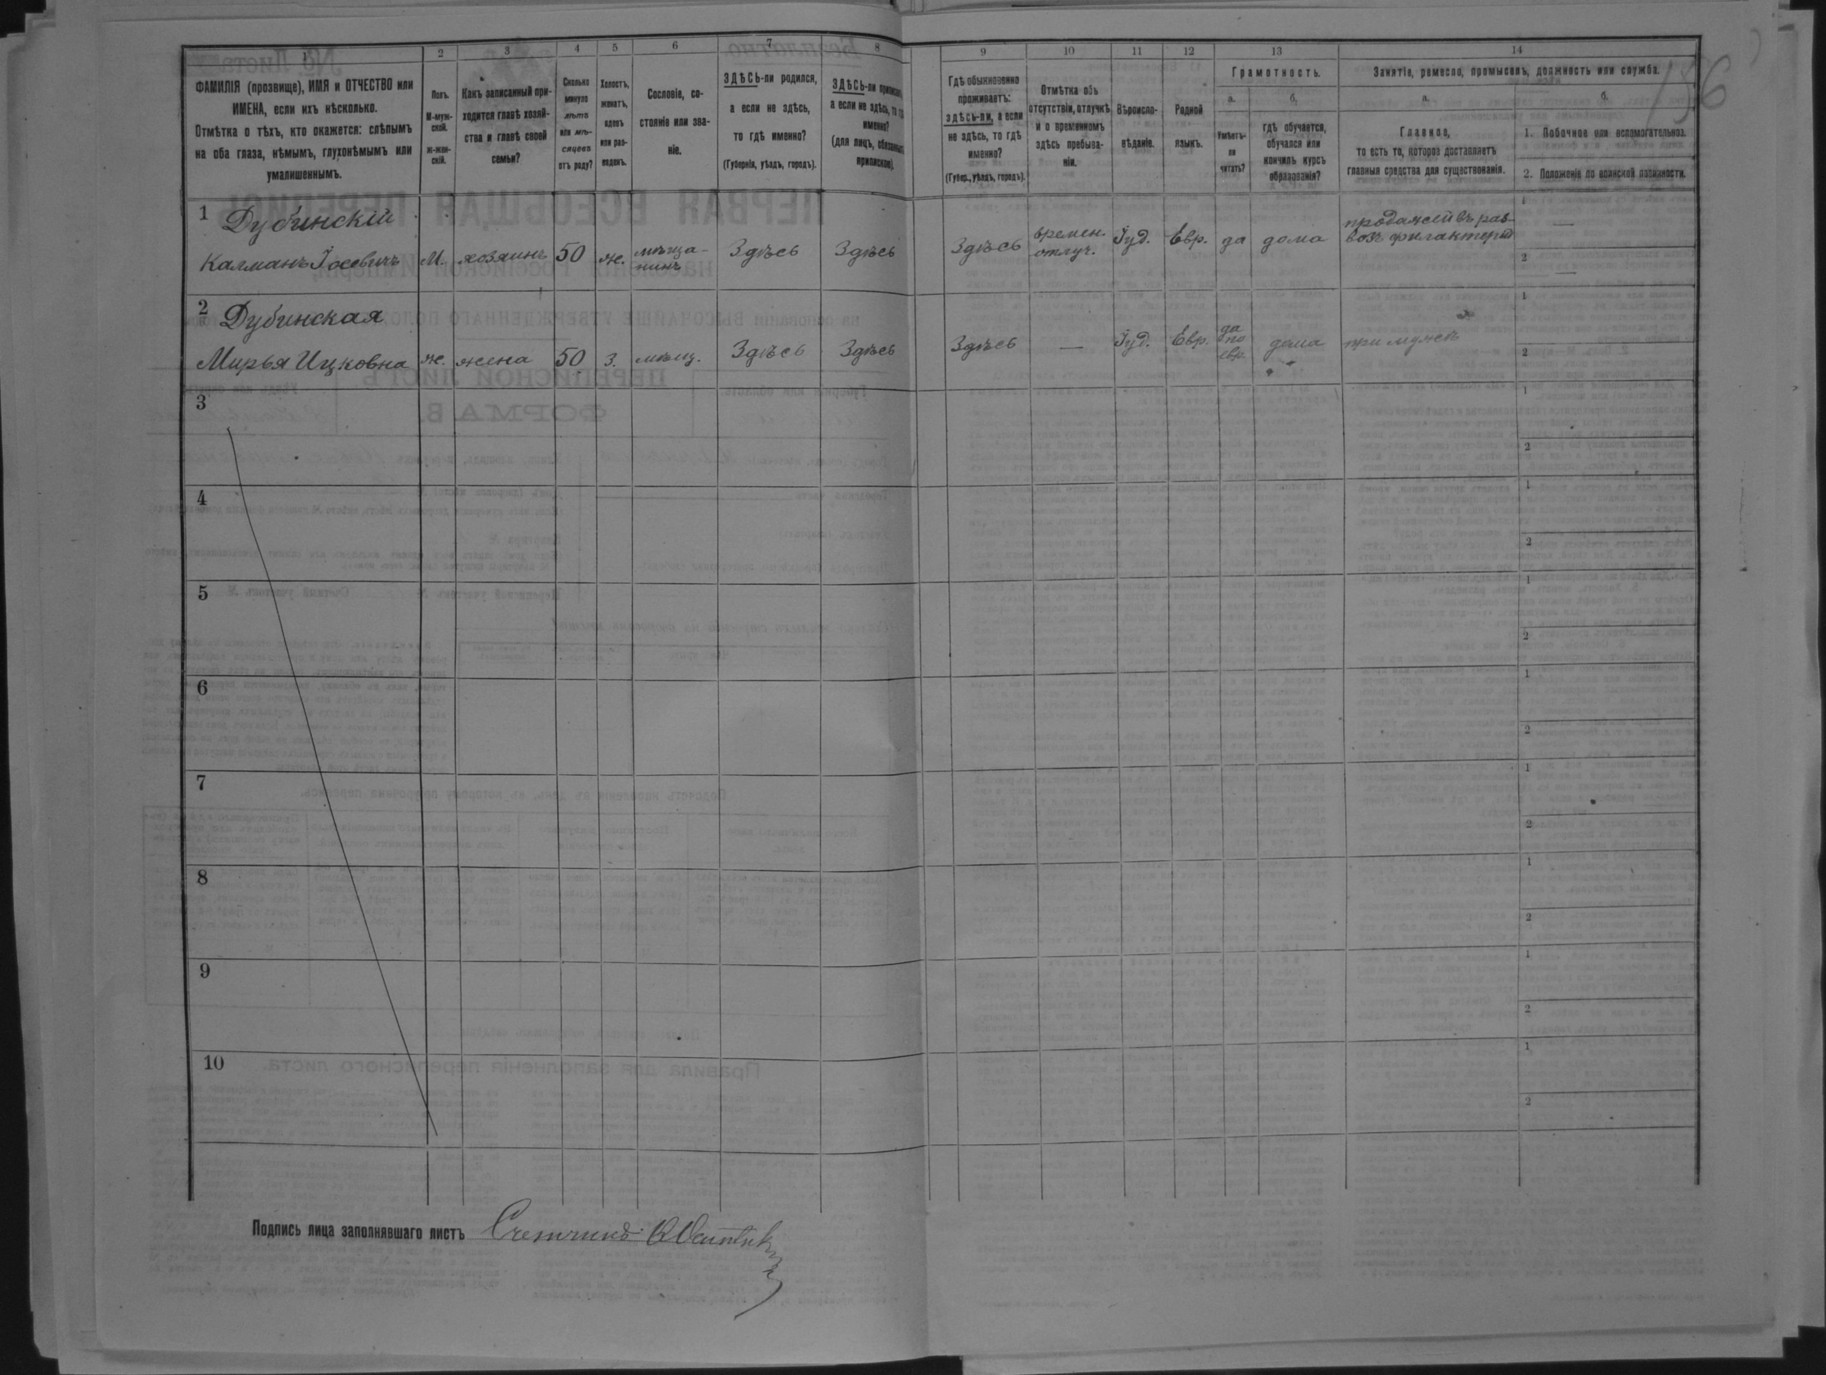 1 2 3 4 5 6 7 8 9 10 11 12 13 14
ФАМИЛІЯ (прозвище), ИМЯ и ОТЧЕСТВО или
ИМЕНА, если ихъ нѣсколько.
Отмѣтка о тѣхъ, кто окажется: слѣпымъ
на оба глаза, нѣмымъ, глухонѣмымъ или
умалишеннымъ.
Полъ.
М-муж-
ской.
Ж-жен-
скій.
Какъ записанный при-
ходится главѣ хозяй-
ства и главѣ своей
семьи?
Сколько
минуло
лѣтъ
или мѣ-
сяцевъ
отъ роду?
Холостъ,
женатъ,
вдовъ
или раз-
веденъ.
Сословіе, со-
стояніе или зва-
ніе.
ЗДѢСЬ-ли родился,
а если не здѣсь,
то гдѣ именно?
(Губернія, уѣздъ, городъ).
ЗДѢСЬ-ли приписанъ,
а если не здѣсь, то гдѣ
именно?
(для лицъ, обязанныхъ
припиской).
Гдѣ обыкновенно
проживаетъ:
здѣсь-ли, а если
не здѣсь, то гдѣ
именно?
(Губер., уѣздъ, городъ).
Отмѣтка объ
отсутствіи, отлучкѣ
и о временномъ
здѣсь пребыва-
ніи.
Вѣроиспо-
вѣданіе.
Родной
языкъ.
Грамотность.
а.
Умѣетъ-
ли
читать?
б.
гдѣ обучается,
обучался или
кончилъ курсъ
образованія?
Занятіе, ремесло, промыселъ, должность или служба.
а.
Главное,
то есть то, которое доставляетъ
главныя средства для существованія.
б.
1. Побочное или вспомогательное.
2. Положеніе по воинской повинности.
1 Дубинскій
Калманъ Іосевичъ М. хозяинъ 50 ж. мѣща-
нинъ Здѣсь Здѣсь Здѣсь времен.
отлуч. Іуд. Евр. да дома продажей въ раз-
возъ 1 —
2 —
2 Дубинская
Мирья Ицковна ж. жена 50 з. мѣщ. Здѣсь Здѣсь Здѣсь — Іуд. Евр. да
по
евр. дома при мужѣ 1
2
3 1
2
4 1
2
5 1
2
6 1
2
7 1
2
8 1
2
9 1
2
10 1
2
Подпись лица заполнявшаго листъ Счетчикъ